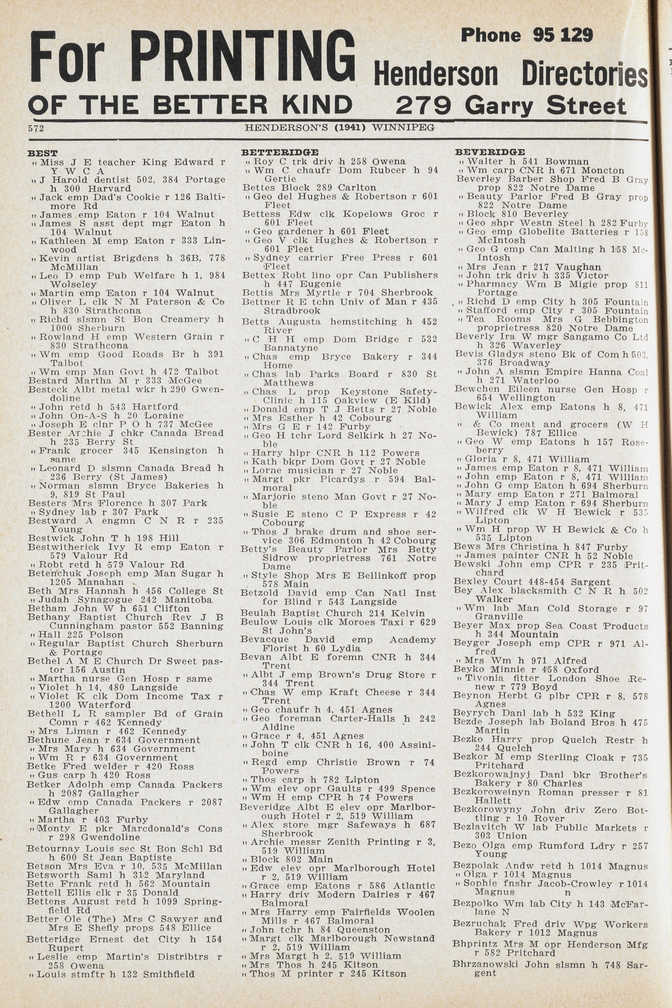 For PRINTING
Phone 95 129
Henderson Directories
OF THE BETTER KIND 279 Garry Street
572 HENDERSON'S (1941) WINNIPEG
BEST
" Miss J E teacher King Edward r
Y W C A
" J Harold dentist 502, 384 Portage
h 300 Harvard
" Jack emp Dad's Cookie r 126 Balti-
more Rd
" James emp Eaton r 104 Walnut
" James S asst dept mgr Eaton h
104 Walnut
" Kathleen M emp Eaton r 333 Lin-
wood
" Kevin artist Brigdens h 36B, 778
McMillan
" Leo D emp Pub Welfare h 1, 984
Wolseley
" Martin emp Eaton r 104 Walnut
" Oliver L clk N M Paterson & Co
h 830 Strathcona
" Richd slsmn St Bon Creamery h
1000 Sherburn
" Rowland H emp Western Grain r
830 Strathcona
" Wm emp Good Roads Br h 391
Talbot
" Wm emp Man Govt h 472 Talbot
Bestard Martha M r 333 McGee
Besteck Albt metal wkr h 290 Gwen-
doline
" John retd h 543 Hartford
" John On-A-S h 20 Loraine
" Joseph E clnr P O h 737 McGee
Bester Archie J chkr Canada Bread
h 235 Berry St
" Frank grocer 345 Kensington h
same
" Leonard D slsmn Canada Bread h
236 Berry (St James)
" Norman slsmn Bryce Bakeries h
9, 819 St Paul
Besters Mrs Florence h 307 Park
" Sydney lab r 307 Park
Bestward A engmn C N R r 235
Young
Bestwick John T h 198 Hill
Bestwitherick Ivy R emp Eaton r
579 Valour Rd
" Robt retd h 579 Valour Rd
Betenchuk Joseph emp Man Sugar h
1205 Manahan
Beth Mrs Hannah h 456 College St
" Judah Synagogue 242 Manitoba
Betham John W h 651 Clifton
Bethany Baptist Church Rev J B
Cunningham pastor 552 Banning
" Hall 225 Polson
" Regular Baptist Church Sherburn
& Portage
Bethel A M E Church Dr Sweet pas-
tor 156 Austin
" Martha nurse Gen Hosp r same
" Violet h 14, 480 Langside
" Violet K clk Dom Income Tax r
1200 Waterford
Bethell L R sampler Bd of Grain
Comn r 462 Kennedy
" Mrs Liman r 462 Kennedy
Bethune Jean r 634 Government
" Mrs Mary h 634 Government
" Wm R r 634 Government
Betke Fred welder r 420 Ross
" Gus carp h 420 Ross
Betker Adolph emp Canada Packers
h 2087 Gallagher
" Edw emp Canada Packers r 2087
Gallagher
" Martha r 403 Furby
" Monty E pkr Marcdonald's Cons
r 298 Gwendoline
Betournay Louis sec St Bon Schl Bd
h 600 St Jean Baptiste
Betson Mrs Eva r 10, 535 McMillan
Betsworth Saml h 312 Maryland
Bette Frank retd h 562 Mountain
Bettell Ellis clk r 35 Donald
Bettens August retd h 1099 Spring-
field Rd
Better Ole (The) Mrs C Sawyer and
Mrs E Shefly props 548 Ellice
Betteridge Ernest det City h 154
Rupert
" Leslie emp Martin's Distribtrs r
258 Owena
" Louis stmftr h 132 Smithfield
BETTERIDGE
" Roy C trk driv h 258 Owena
" Wm C chaufr Dom Rubcer h 94
Gertie
Bettes Block 289 Carlton
" Geo del Hughes & Robertson r 601
Fleet
Bettess Edw clk Kopelows Groc r
601 Fleet
" Geo gardener h 601 Fleet
" Geo V clk Hughes & Robertson r
601 Fleet
" Sydney carrier Free Press r 601
Fleet
Bettex Robt lino opr Can Publishers
h 447 Eugenie
Bettis Mrs Myrtle r 704 Sherbrook
Bettner R E tchn Univ of Man r 435
Stradbrook
Betts Augusta hemstitching h 452
River
" C H H emp Dom Bridge r 532
Bannatyne
" Chas emp Bryce Bakery r 344
Home
" Chas lab Parks Board r 830 St
Matthews
" Chas L prop Keystone Safety-
Clinic h 115 Oakview (E Kild)
" Donald emp T J Betts r 27 Noble
" Mrs Esther h 42 Cobourg
" Mrs G E r 142 Furby
" Geo H tchr Lord Selkirk h 27 No-
ble
" Harry hlpr CNR h 112 Powers
" Kath bkpr Dom Govt r 27 Noble
" Lorne musician r 27 Noble
" Margt pkr Picardys r 594 Bal-
moral
" Marjorie steno Man Govt r 27 No-
ble
" Susie E steno C P Express r 42
Cobourg
" Thos J brake drum and shoe ser-
vice 306 Edmonton h 42 Cobourg
Betty's Beauty Parlor Mrs Betty
Sidrow proprietress 761 Notre
Dame
" Style Shop Mrs E Bellinkoff prop
578 Main
Betzold David emp Can Natl Inst
for Blind r 543 Langside
Beulah Baptist Church 214 Kelvin
Beulow Louis clk Moroes Taxi r 629
St John's
Bevacque David emp Academy
Florist h 60 Lydia
Bevan Albt E foremn CNR h 344
Trent
" Albt J emp Brown's Drug Store r
344 Trent
" Chas W emp Kraft Cheese r 344
Trent
" Geo chaufr h 4, 451 Agnes
" Geo foreman Carter-Halls h 242
Aldine
" Grace r 4, 451 Agnes
" John T clk CNR h 16, 400 Assini-
boine
" Regd emp Christie Brown r 74
Powers
" Thos carp h 782 Lipton
" Wm elev opr Gaults r 499 Spence
" Wm H emp CPR h 74 Powers
Beveridge Albt E elev opr Marlbor-
ough Hotel r 2, 519 William
" Alex store mgr Safeways h 687
Sherbrook
" Archie messr Zenith Printing r 3,
519 William
" Block 802 Main
" Edw elev opr Marlborough Hotel
r 2, 519 William
" Grace emp Eatons r 586 Atlantic
" Harry driv Modern Dairies r 467
Balmoral
" Mrs Harry emp Fairfields Woolen
Mills r 467 Balmoral
" John tchr h 84 Queenston
" Margt clk Marlborough Newstand
r 2, 519 William
" Mrs Margt h 2, 519 William
" Mrs Thos h 245 Kitson
" Thos M printer r 245 Kitson
BEVERIDGE
" Walter h 541 Bowman
" Wm carp CNR h 671 Moncton
Beverley Barber Shop Fred B Gray
prop 822 Notre Dame
" Beauty Parlor Fred B Gray prop
822 Notre Dame
" Block 810 Beverley
" Geo shpr Westn Steel h 282 Furby
" Geo emp Globelite Batteries r 158
McIntosh
" Geo G emp Can Malting h 158 Mc-
Intosh
" Mrs Jean r 217 Vaughan
" John trk driv h 335 Victor
" Pharmacy Wm B Migie prop 811
Portage
" Richd D emp City h 305 Fountain
" Stafford emp City r 305 Fountain
" Tea Rooms Mrs G Bebbington
proprietress 820 Notre Dame
Beverly Ira W mgr Sangamo Co Ltd
h 326 Waverley
Bevis Gladys steno Bk of Com h 503,
376 Broadway
" John A slsmn Empire Hanna Coal
h 271 Waterloo
Bewchen Eileen nurse Gen Hosp r
654 Wellington
Bewick Alex emp Eatons h 8, 471
William
" & Co meat and grocers (W H
Bewick) 787 Ellice
" Geo W emp Eatons h 157 Rose-
berry
" Gloria r 8, 471 William
" James emp Eaton r 8, 471 William
" John emp Eaton r 8, 471 William
" John G emp Eaton h 694 Sherburn
" Mary emp Eaton r 271 Balmoral
" Mary J emp Eaton r 694 Sherburn
" Wilfred clk W H Bewick r 535
Lipton
" Wm H prop W H Bewick & Co h
535 Lipton
Bews Mrs Christina h 847 Furby
" James painter CNR h 52 Noble
Bewski John emp CPR r 235 Prit-
chard
Bexley Court 448-454 Sargent
Bey Alex blacksmith C N R h 502
Walker
" Wm lab Man Cold Storage r 97
Granville
Beyer Max prop Sea Coast Products
h 344 Mountain
Beyger Joseph emp CPR r 971 Al-
fred
" Mrs Wm h 971 Alfred
Beyko Minnie r 458 Oxford
" Tivonia fitter London Shoe Re-
new r 779 Boyd
Beynon Herbt G plbr CPR r 8, 578
Agnes
Beyrych Danl lab h 532 King
Bezde Joseph lab Boland Bros h 475
Martin
Bezko Harry prop Quelch Restr h
244 Quelch
Bezkor M emp Sterling Cloak r 735
Pritchard
Bezkorowajnyj Danl bkr Brother's
Bakery r 80 Charles
Bezkorowelnyn Roman presser r 81
Hallett
Bezkorowyny John driv Zero Bot-
tling r 10 Rover
Bezlavitch W lab Public Markets r
303 Union
Bezo Olga emp Rumford Ldry r 257
Young
Bezpolak Andw retd h 1014 Magnus
" Olga r 1014 Magnus
" Sophie fnshr Jacob-Crowley r 1014
Magnus n
Bezpolko Wm lab City h 143 McFar-
lane N
Bezruchak Fred driv Wpg Workers
Bakery r 1012 Magnus
Bhprintz Mrs M opr Henderson Mfg
r 582 Pritchard
Bhrzanowski John slsmn h 748 Sar-
gent